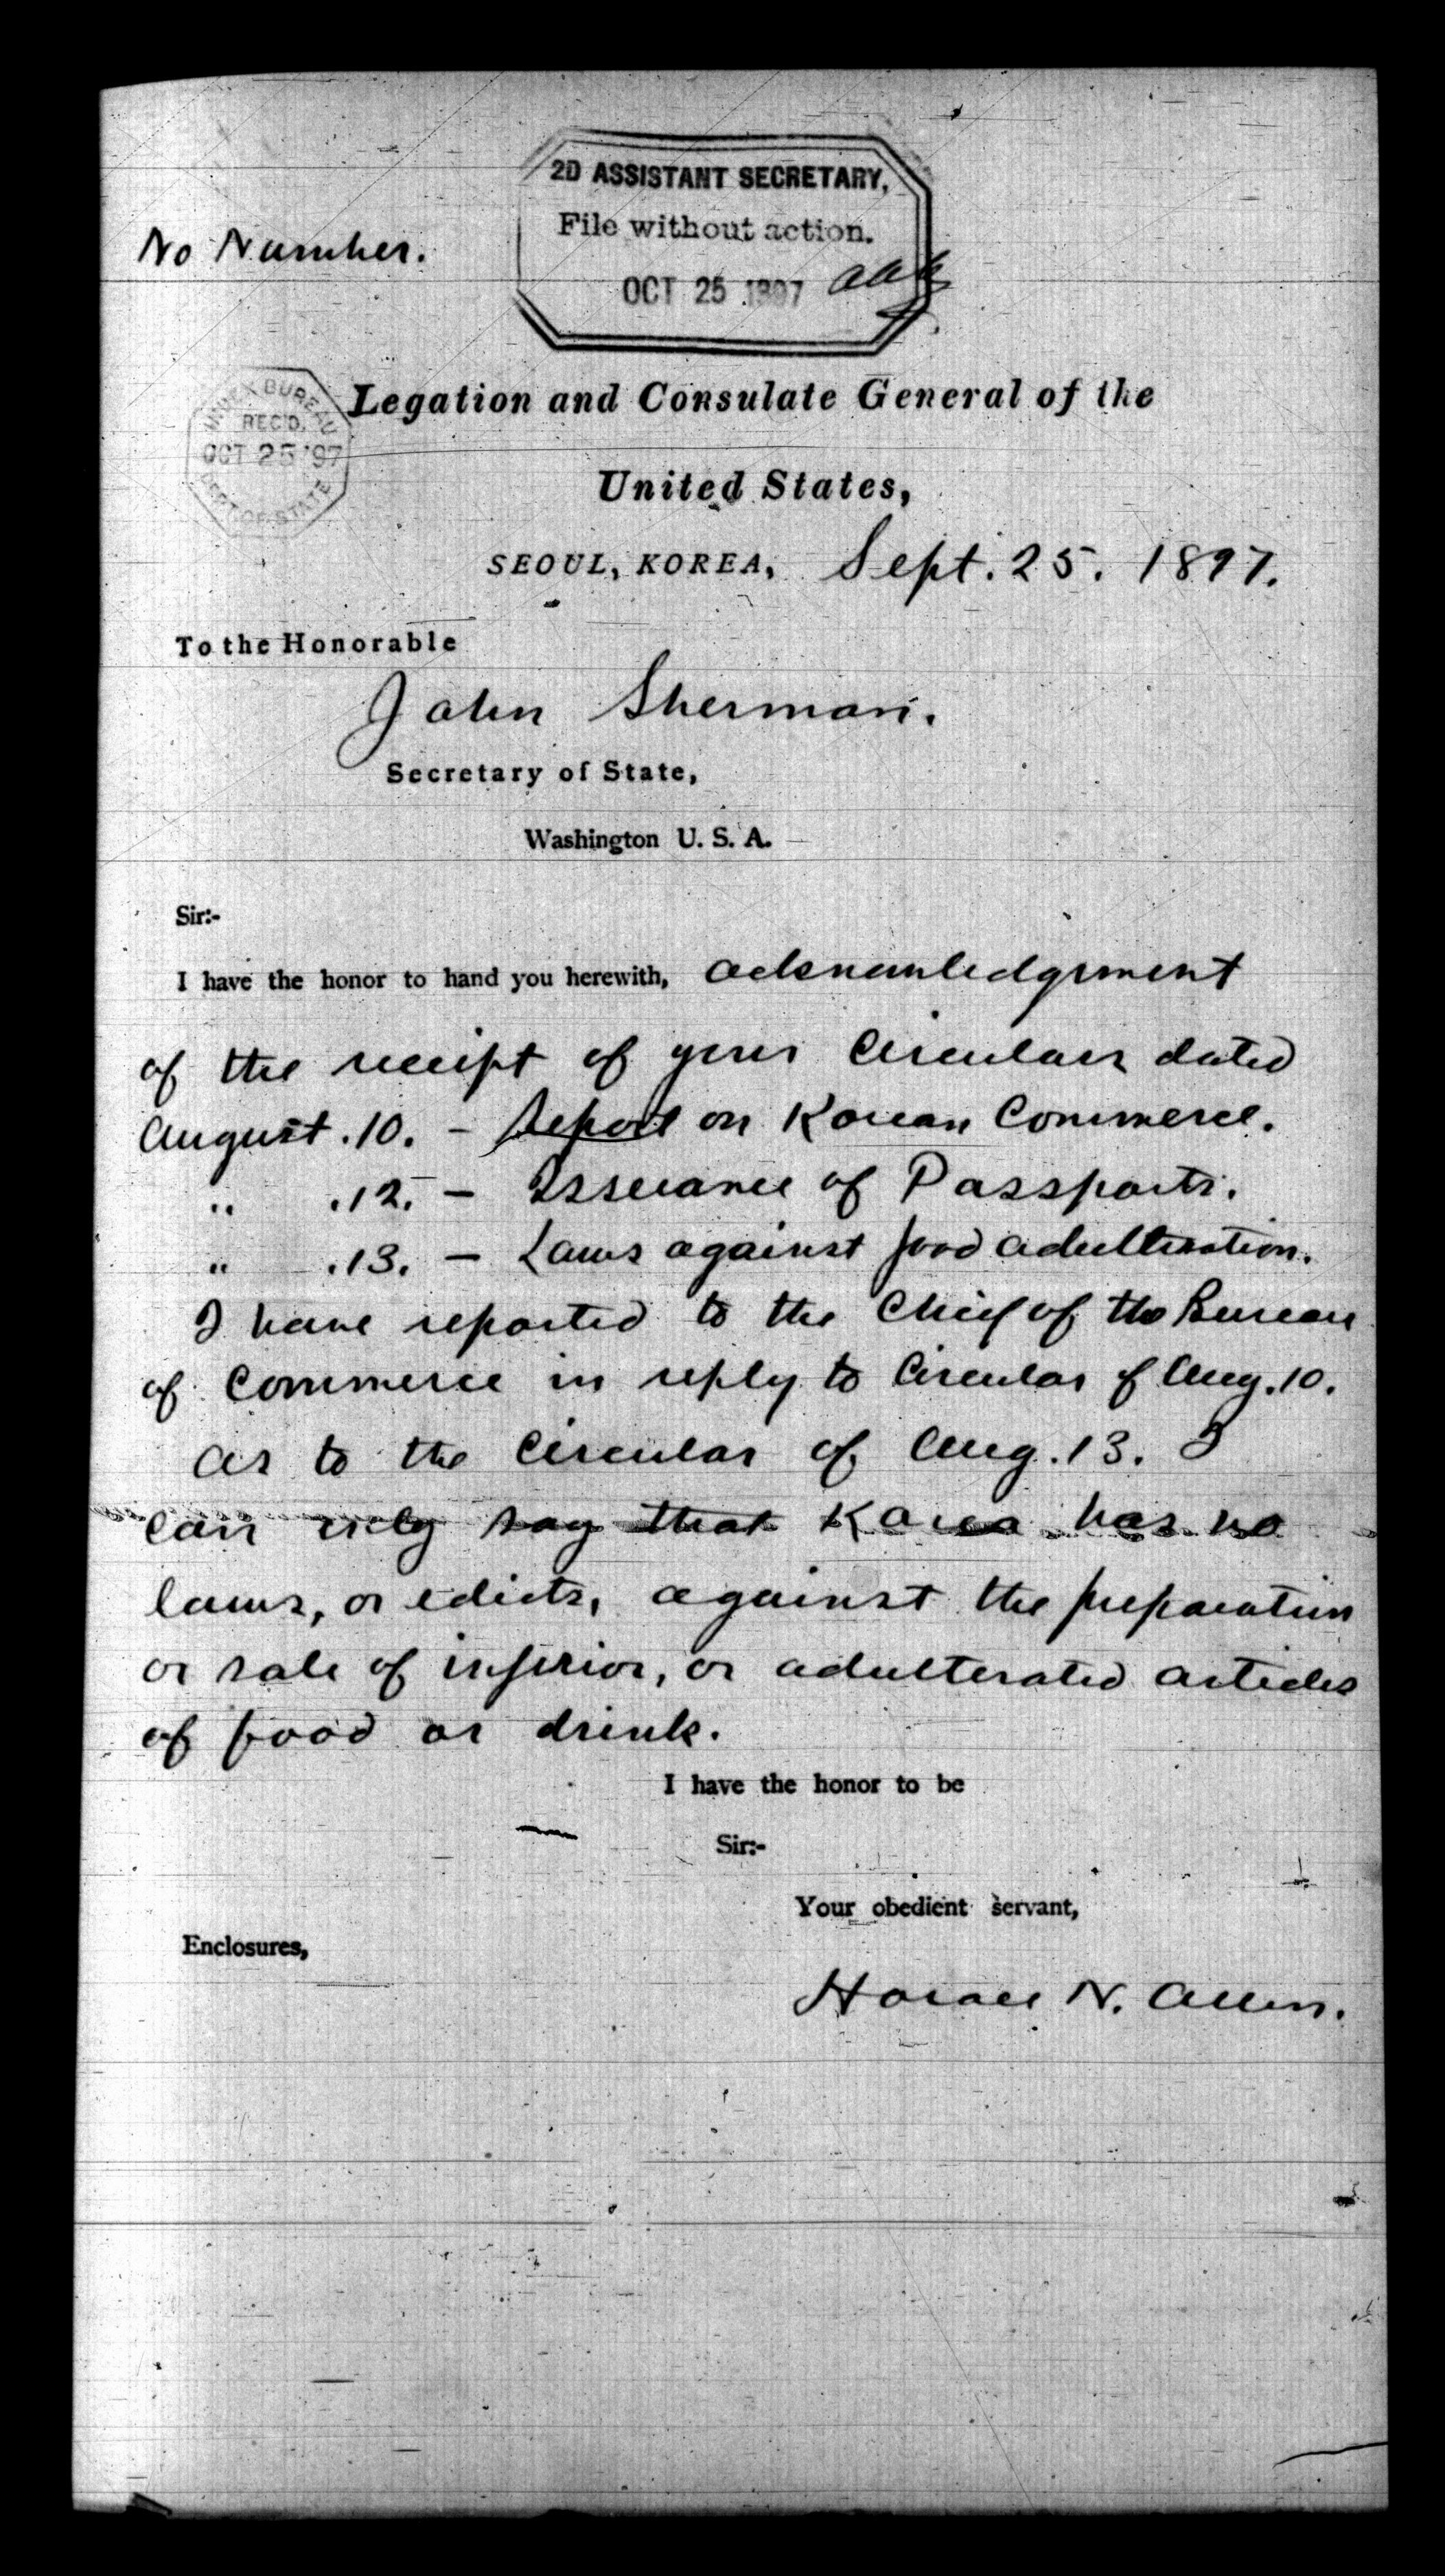 2D ASSISTANT SECRETARY,
File without action.
OCT 25 1897
No Number.
INDEX BUREAU
REC'D.
OCT 25 '97
DEPT. OF STATE
Legation and Consulate General of the
United States,
SEOUL, KOREA, Sept. 25. 1897.
To the Honorable
John Sherman.
Secretary of State,
Washington U. S. A.
Sir:-
I have the honor to hand you herewith, acknowledgment
of the receipt of your Circulars dated
August .10. - Report on Korean Commerce.
" .12. - Issuance of Passports.
" .13. - Laws against food adulteration.
I have reported to the Chief of the Bureau
of Commerce in reply to Circular of Aug. 10.
As to the Circular of Aug. 13. I
can only say that Korea has no
laws, or edicts, against the preparation
or sale of inferior, or adulterated articles
of food or drink.
I have the honor to be
Sir:-
Your obedient servant,
Enclosures,
Horace N. Allen.